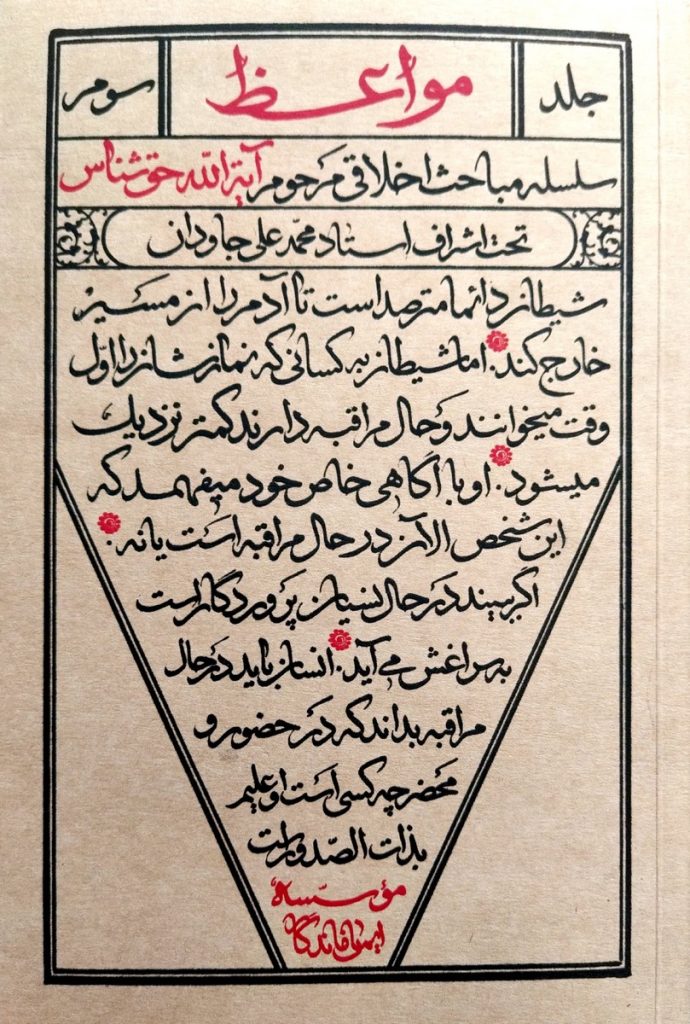 جلد مواعظ سوم
سلسله مباحث اخلاقی مرحوم آیة الله حق شناس
تحت اشراف استاد محمد علی جاودان
شیطان دائما مترصد است تا آدم را از مسیر
خارج کند. اما شیطان به کسانی که نمازشان را اوّل
وقت میخوانند و حال مراقبه دارند کمتر نزدیک
میشود. او با آگاهی خاص خود میفهمد که
این شخص الآن در حال مراقبه است یا نه.
اگر ببیند در حال نسیان پروردگار است
به سراغش می آید. انسان باید در حال
مراقبه بداند که در حضور و
محضر چه کسی است او علیم
بذات الصّدور است
مؤسّسه
ایمان ماندگار